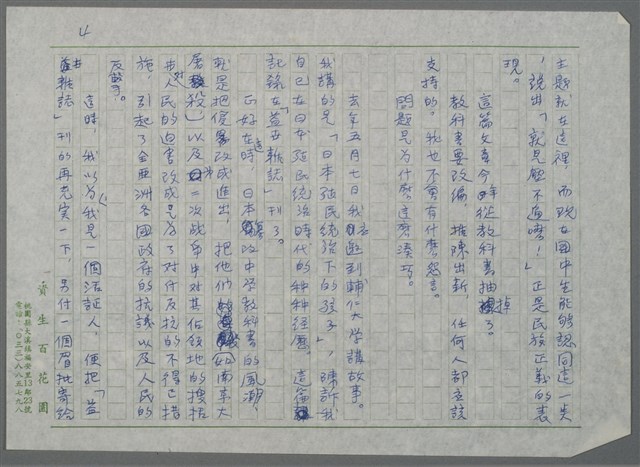 4
主題就在這裡，而現在國中生能夠認同這一點
，說出「就是敵不過嘴！」正是民族正義的表
現。
這篇文章今年從教科書抽掉了。
教科書要改編，推陳出新，任何人都應該
支持的。我也不會有什麼怨言。
問題是為什麼這麼湊巧。
去年五月七日我應邀到輔仁大學講故事。
我講的是「日本殖民統治下的孩子」，陳訴我
自己在日本殖民統治時代的種種經歷。這篇
記錄在「益世雜誌」刊了。
正好在這時，日本篡改中學教科書的風潮，
就是把侵略改成進出，把他們（如南京大
屠殺）以及二次大戰爭中對其佔領地的搜括
對人民的迫害改成是為了對付反抗的不得已措
施，引起了全亞洲各國政府的抗議以及人民的
反擊。
這時，我以為我是一個活証人，便把「益
世雜誌」刊的再充實一下，另付一個眉批寄給
資生百花園
桃園縣大溪鎮福安里13鄰23號
電話：(〇三三)八八三五七九八